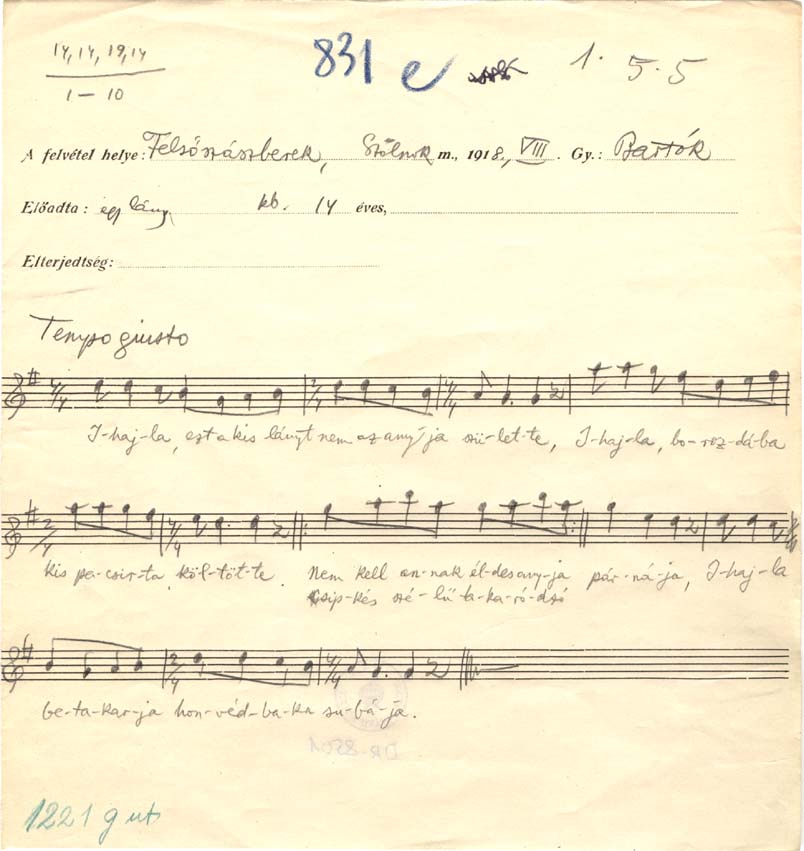 14, 14, 19, 14
1 – 10
831 e
1. 5. 5
A felvétel helye: Felsőszászberek, Szolnok m., 1918., VIII. Gy.: Bartók
Előadta: egy lány kb. 14 éves,
Elterjedtség:
Tempo giusto
I-haj-la, ezt a kis lányt nem az any-ja szü-let-te, I-haj-la, bo-roz-dá-ba
kis pa-csir-ta köl-töt-te. Nem kell an-nak él-desany-ja pár-ná-ja, I-haj-la
Csip-kés szé-lű ta-ka-ró-dzó
be-ta-kar-ja hon-véd-ba-ka su-bá-ja.
1221 g